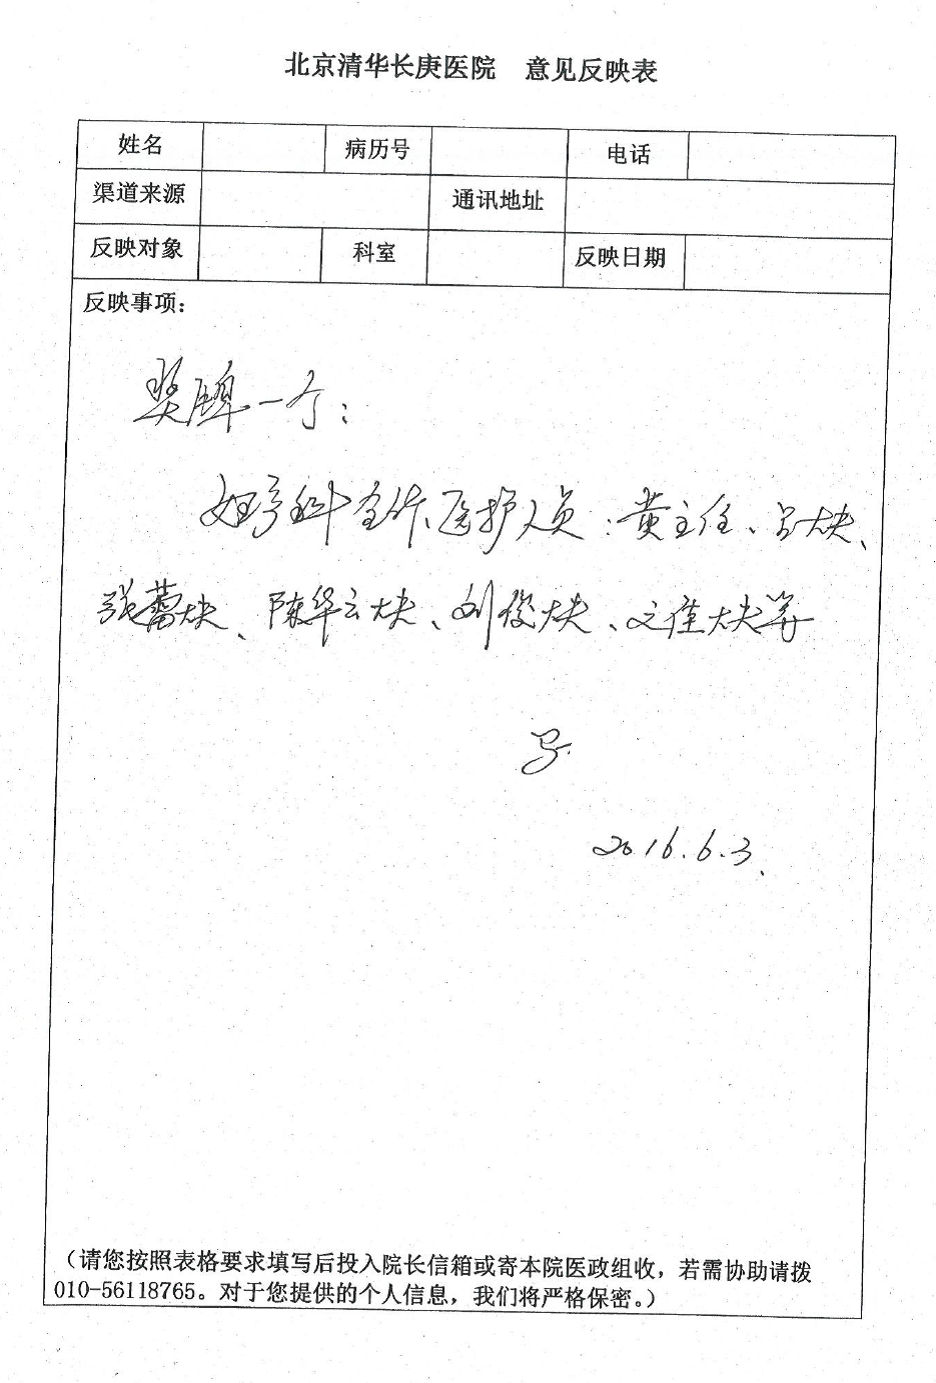 北京清华长庚医院 意见反映表
姓名 病历号 电话
渠道来源 通讯地址
反映对象 科室 反映日期
反映事项：
奖牌一个：
妇产科全体医护人员：黄主任、吕大夫、
张蕾大夫、陈华云大夫、刘俊大夫、文佳大夫等
2016.6.3、
（请您按照表格要求填写后投入院长信箱或寄本院医政组收，若需协助请拨
010-56118765。对于您提供的个人信息，我们将严格保密。）